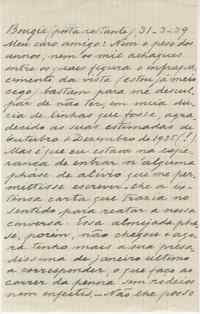 Bougie (posta restante), 31-3-29
Meu caro amigo: Nem o peso dos
annos, nem os mil achaques
entre os quaes figura o enfraque-
cimento da vista (estou já meio
cego) bastam para me descul-
par de não ter, em meia du-
zia de linhas que fosse, agra-
decido as suas estimadas de
Outubro e Dezembro de 1925(!)
Mas é que eu estava na espe-
rança de entrar n'alguma
phase de allivio que me per-
mittisse escrever-lhe a ex-
tensa carta que trazia no
sentido para reatar a nossa
conversa. Essa almejada pha-
se, porém, não chegou e ago-
ra tenho mais a sua presa-
dissima de janeiro ultimo
a corresponder, o que faço ao
correr da penna sem rodeios
nem enfeites.- Não lhe posso